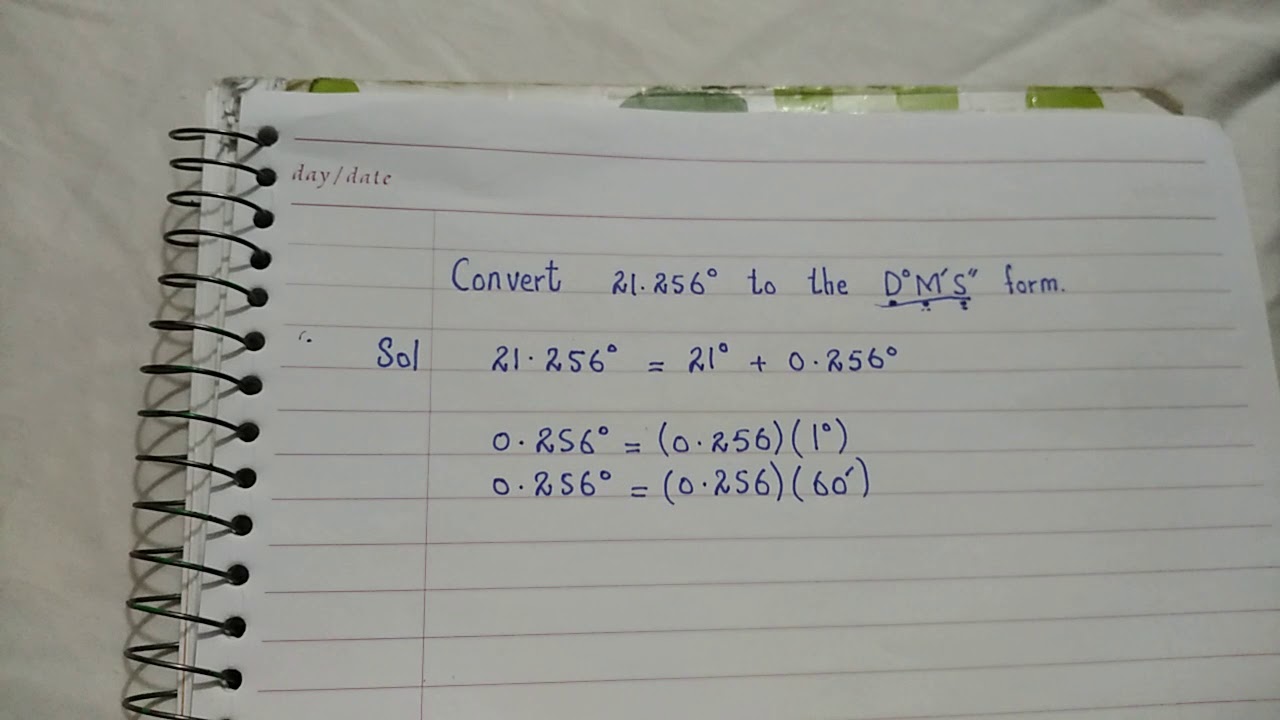 day/date
Convert 21.256° to the D°M'S" form.
Sol 21.256° = 21° + 0.256°
0.256° = (0.256)(1°)
0.256° = (0.256)(60')